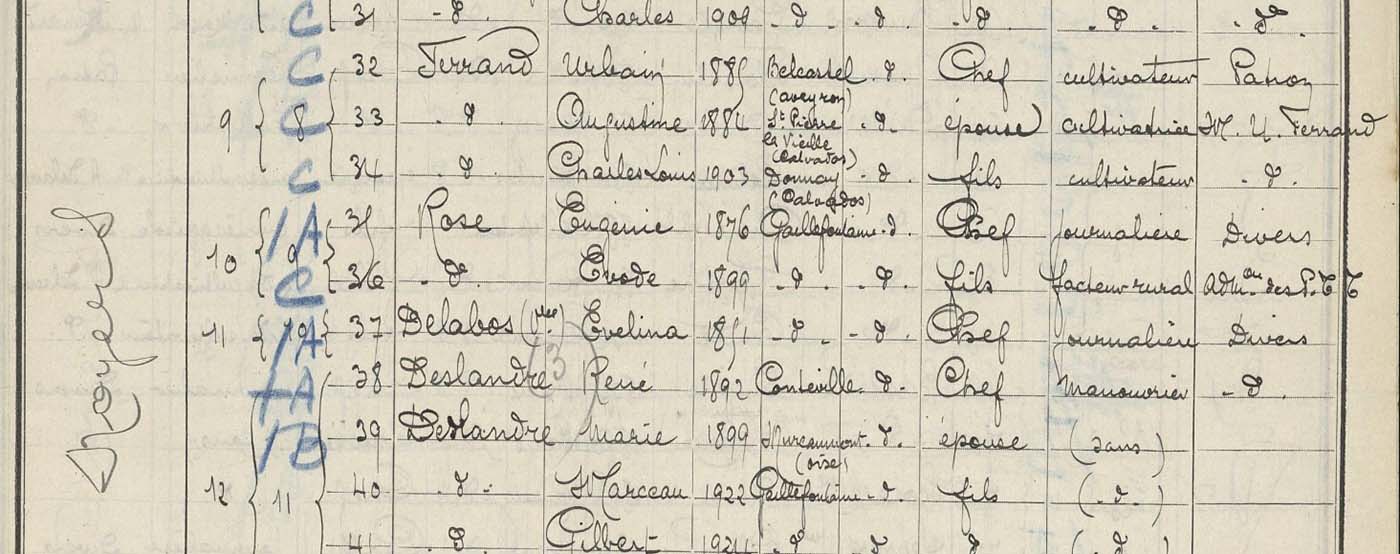 C 31 - d - Charles 1908 - d - d - d - d - d
C 32 Ferrand Urbain 1885 Belcastel - d - Chef cultivateur Patron
(aveyron)
9 8 C 33 - d - Augustine 1884 St Pierre - d - épouse cultivatrice M. U. Ferrand
la Vieille
(Calvados)
C 34 - d - Charles Louis 1903 Donnay - d - fils cultivateur - d -
(Calvados)
1A 35 Rose Eugénie 1876 Gaillefontaine - d Chef journalière Divers
10 9 C 36 - d - Evode 1899 - d - d - fils facteur rural Adm.on des P.T.T
11 10 1A 37 Delabos (Vve) Evelina 1851 - d - d - Chef journalière Divers
1A 38 Deslandre René 1892 Conteville - d - Chef manouvrier - d -
1B 39 Deslandre Marie 1899 - d - épouse (sans)
(oise)
12 11 40 - d - Marceau 1922 Gaillefontaine - d - fils (- d -)
41 - d - Gilbert 1924 - d - d d d
Noyers